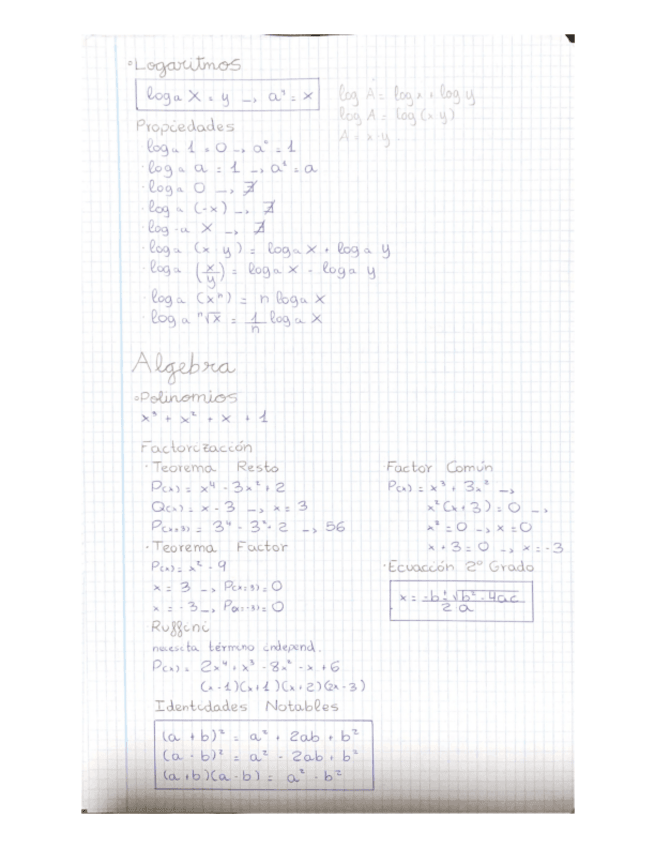 · Logaritmos
logₐ x = y → aʸ = x
log A = log x + log y
log A = log (x y)
A = x · y
Propiedades
logₐ 1 = 0 → a⁰ = 1
· logₐ a = 1 → a¹ = a
· logₐ 0 → ∄
· logₐ (-x) → ∄
· log₋ₐ x → ∄
· logₐ (x y) = logₐ x + logₐ y
· logₐ (x/y) = logₐ x - logₐ y
· logₐ (xⁿ) = n logₐ x
· logₐ ⁿ√x = 1/n logₐ x
Algebra
· Polinomios
x³ + x² + x + 1
Factorización
· Teorema Resto
P(x) = x⁴ - 3x² + 2
Q(x) = x - 3 → x = 3
P(x=3) = 3⁴ - 3³ + 2 → 56
· Teorema Factor
P(x) = x² - 9
x = 3 → P(x=3) = 0
x = -3 → P(x=-3) = 0
Ruffini
necesita término independ.
P(x) = 2x⁴ + x³ - 8x² - x + 6
(x - 1)(x + 1)(x + 2)(2x - 3)
Identidades Notables
(a + b)² = a² + 2ab + b²
(a - b)² = a² - 2ab + b²
(a + b)(a - b) = a² - b²
Factor Común
P(x) = x³ + 3x² →
x²(x + 3) = 0 →
x² = 0 → x = 0
x + 3 = 0 → x = -3
· Ecuacción 2º Grado
x = -b ± √b² - 4ac / 2a